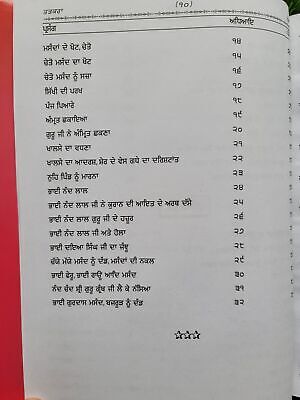 ਤਤਕਰਾ (੧੦)
ਪ੍ਰਸੰਗ ਅਧਿਆਇ
ਮਸੰਦਾਂ ਦੇ ਖੋਟ, ਚੇਤੋ ੧੪
ਚੇਤੋ ਮਸੰਦ ਦਾ ਖੋਟ ੧੫
ਚੇਤੋ ਮਸੰਦ ਨੂੰ ਸਜ਼ਾ ੧੬
ਸਿੱਖੀ ਦੀ ਪਰਖ ੧੭
ਪੰਜ ਪਿਆਰੇ ੧੮
ਅੰਮ੍ਰਿਤ ਛਕਾਇਆ ੧੯
ਗੁਰੂ ਜੀ ਨੇ ਅੰਮ੍ਰਿਤ ਛਕਣਾ ੨੦
ਖਾਲਸੇ ਦਾ ਵਧਣਾ ੨੧
ਖਾਲਸੇ ਦਾ ਆਦਰਸ਼, ਸ਼ੇਰ ਦੇ ਵੇਸ ਗਧੇ ਦਾ ਦਰਿਸ਼ਟਾਂਤ ੨੨
ਨੂਹਿ ਪਿੰਡ ਨੂੰ ਮਾਰਨਾ ੨੩
ਭਾਈ ਨੰਦ ਲਾਲ ੨੪
ਭਾਈ ਨੰਦ ਲਾਲ ਜੀ ਨੇ ਕੁਰਾਨ ਦੀ ਆਇਤ ਦੇ ਅਰਥ ਦੱਸੇ ੨੫
ਭਾਈ ਨੰਦ ਲਾਲ ਗੁਰੂ ਜੀ ਦੇ ਹਜ਼ੂਰ ੨੬
ਭਾਈ ਨੰਦ ਲਾਲ ਜੀ ਅਤੇ ਹੋਲਾ ੨੭
ਭਾਈ ਦਇਆ ਸਿੰਘ ਜੀ ਦਾ ਜੰਞੂ ੨੮
ਮੇਲੇ ਮਸੰਦ ਨੂੰ ਦੰਡ, ਮਸੰਦਾਂ ਦੀ ਨਕਲ ੨੯
ਭਾਈ ਫੇਰੂ, ਭਾਈ ਗਾਉ ਆਦਿ ਮਸੰਦ ੩੦
ਨੰਦ ਚੰਦ ਸ੍ਰੀ ਗੁਰੂ ਗ੍ਰੰਥ ਜੀ ਲੈ ਕੇ ਨੱਸਿਆ ੩੧
ਭਾਈ ਗੁਰਦਾਸ ਮਸੰਦ, ਬਜਰੂੜ ਨੂੰ ਦੰਡ ੩੨